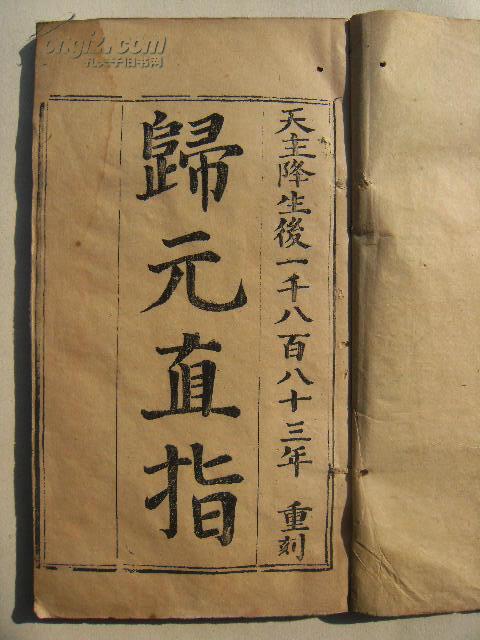 天主降生後一千八百八十三年 重刻
歸元直指
kongfz.com
孔夫子旧书网